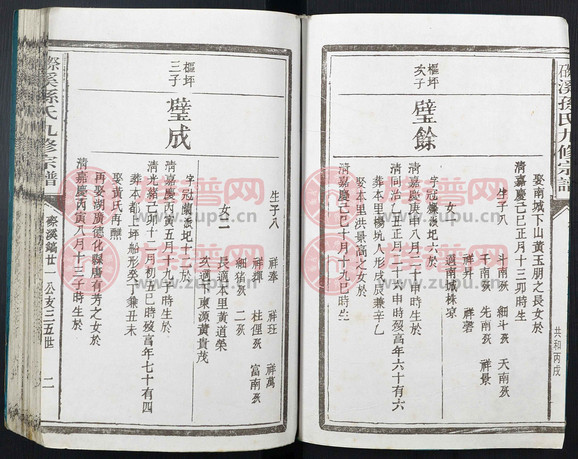 磜溪孫氏九修宗譜
共和丙戌
娶南城下山黃玉朋之長女於
清嘉慶己巳正月十三卯時生
生子八
斗南歿 細斗歿 天南歿
千南歿 先南歿 祥景
祥昇 祥蓉
女一
適南城株凉
樞坪
次子
璧餘
字冠
清嘉慶庚申八月二十
清同治八年
六申時歿年六十有六
葬本里楊坑人形戌辰兼辛乙
娶本里洪景高之女於
清嘉慶己巳十月十九巳時
生
生子八
祥奉 祥班 祥萬
祥禪 杜俚歿 富南歿
細猪歿 二歿
女二
長適本里黃道榮
次適下東源黃貴茂
樞坪
三子
璧成
字冠蘭
清嘉慶丙寅五月十九
時生於
清光緒己卯十一月初五巳時歿年七十有四
葬本都上坪船形癸丁兼丑未
娶黃氏再醮
再娶湖廣德化縣唐有芳之女於
清嘉慶丙寅八月十三子時生於
磜溪孫氏九修宗譜
磜溪鎬廿一公支三五世
二
族譜网
www.zupu.cn